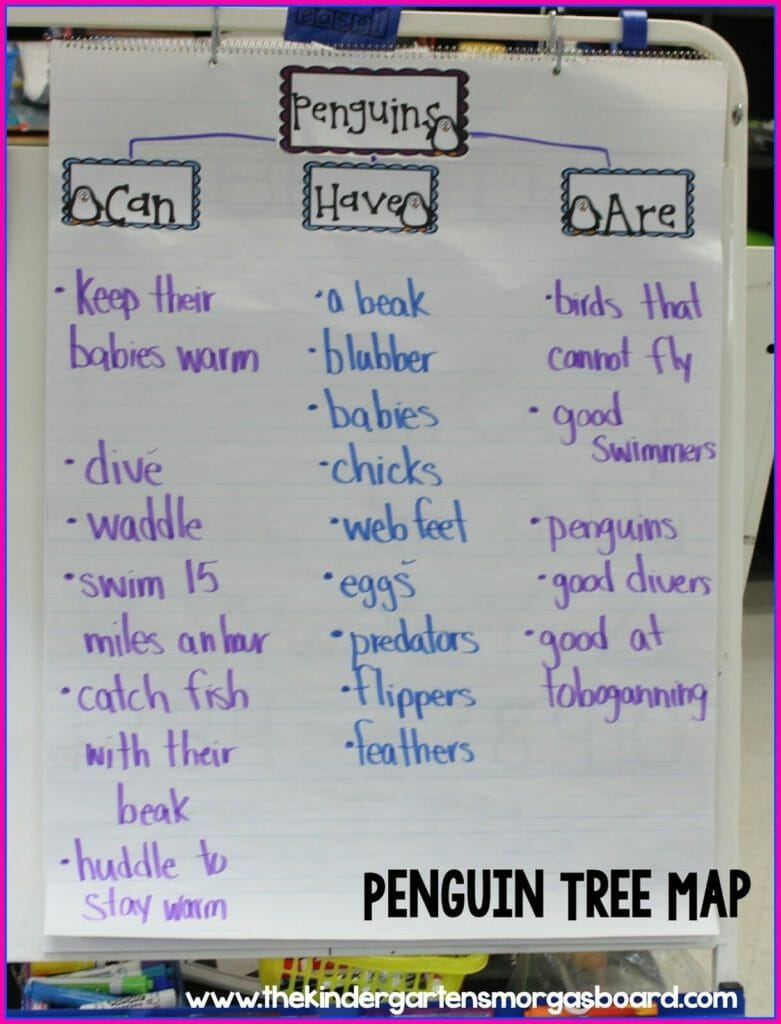 Penguins
Can
Have
Are
• Keep their
babies warm
• dive
• waddle
• swim 15
miles an hour
• catch fish
with their
beak
• huddle to
stay warm
• a beak
• blubber
• babies
• chicks
• web feet
• eggs
• predators
• flippers
• feathers
• birds that
cannot fly
• good
swimmers
• penguins
• good divers
• good at
toboganning
PENGUIN TREE MAP
www.thekindergartensmorgasboard.com